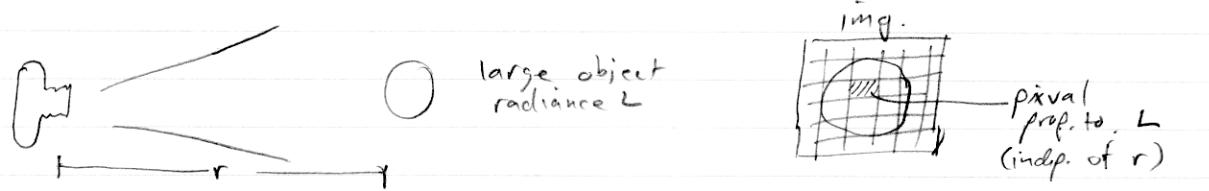 img.
large object
radiance L
pixval
prop. to. L
(indep. of r)
r